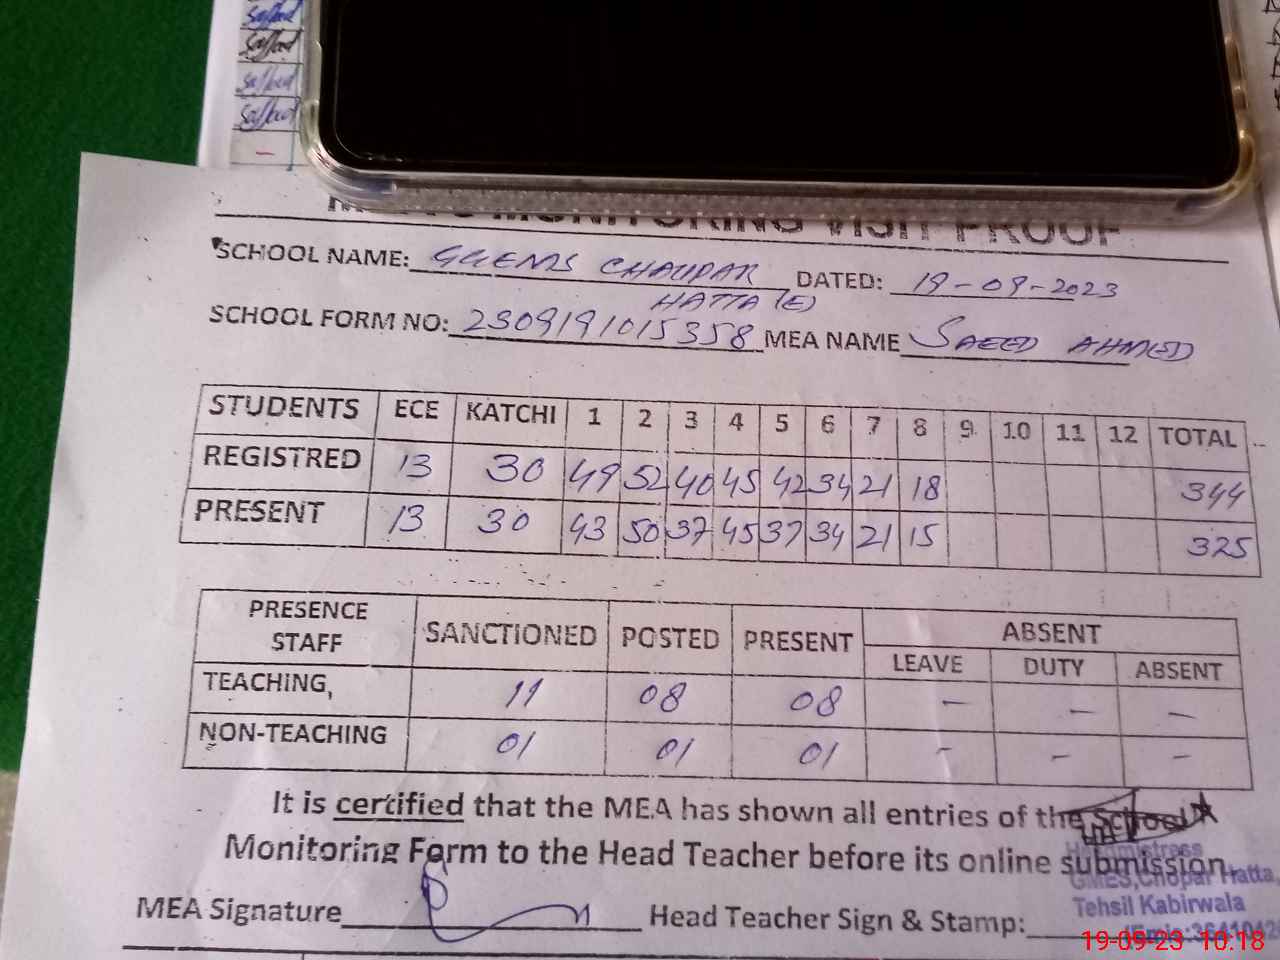 MONITORING VISIT PROOF
SCHOOL NAME: GGEMS CHAUPAR HATTA (E) DATED: 19-09-2023
SCHOOL FORM NO: 2309191015358 MEA NAME SAEED AHMED
STUDENTS ECE KATCHI 1 2 3 4 5 6 7 8 9 10 11 12 TOTAL
REGISTRED 13 30 49 52 40 45 42 34 21 18 344
PRESENT 13 30 43 50 37 45 37 34 21 15 325
PRESENCE STAFF SANCTIONED POSTED PRESENT ABSENT
LEAVE DUTY ABSENT
TEACHING, 11 08 08 - - -
NON-TEACHING 01 01 01 - - -
It is certified that the MEA has shown all entries of the School
Monitoring Form to the Head Teacher before its online submission.
Headmistress
GMES,Chopar Hatta,
Tehsil Kabirwala
MEA Signature Head Teacher Sign & Stamp:
19-09-23 10:18